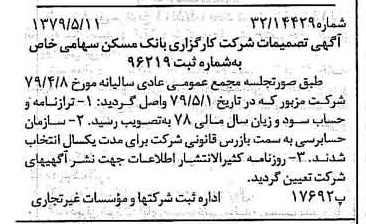 شماره۳۲/۱۴۴۲۹ ۱۳۷۹/۵/۱۱
آگهی تصمیمات شرکت کارگزاری بانک مسکن سهامی خاص
به‌شماره ثبت ۹۶۲۱۹
طبق صورتجلسه مجمع عمومی عادی سالیانه مورخ ۷۹/۴/۸
شرکت مزبور که در تاریخ ۷۹/۵/۱ واصل گردید: ۱- ترازنامه و
حساب سود و زیان سال مالی ۷۸ به‌تصویب رسید. ۲- سازمان
حسابرسی به سمت بازرس قانونی شرکت برای مدت یکسال انتخاب
شدند. ۳- روزنامه کثیرالانتشار اطلاعات جهت نشر آگهیهای
شرکت تعیین گردید.
پ۱۷۶۹۲ اداره ثبت شرکتها و مؤسسات غیرتجاری